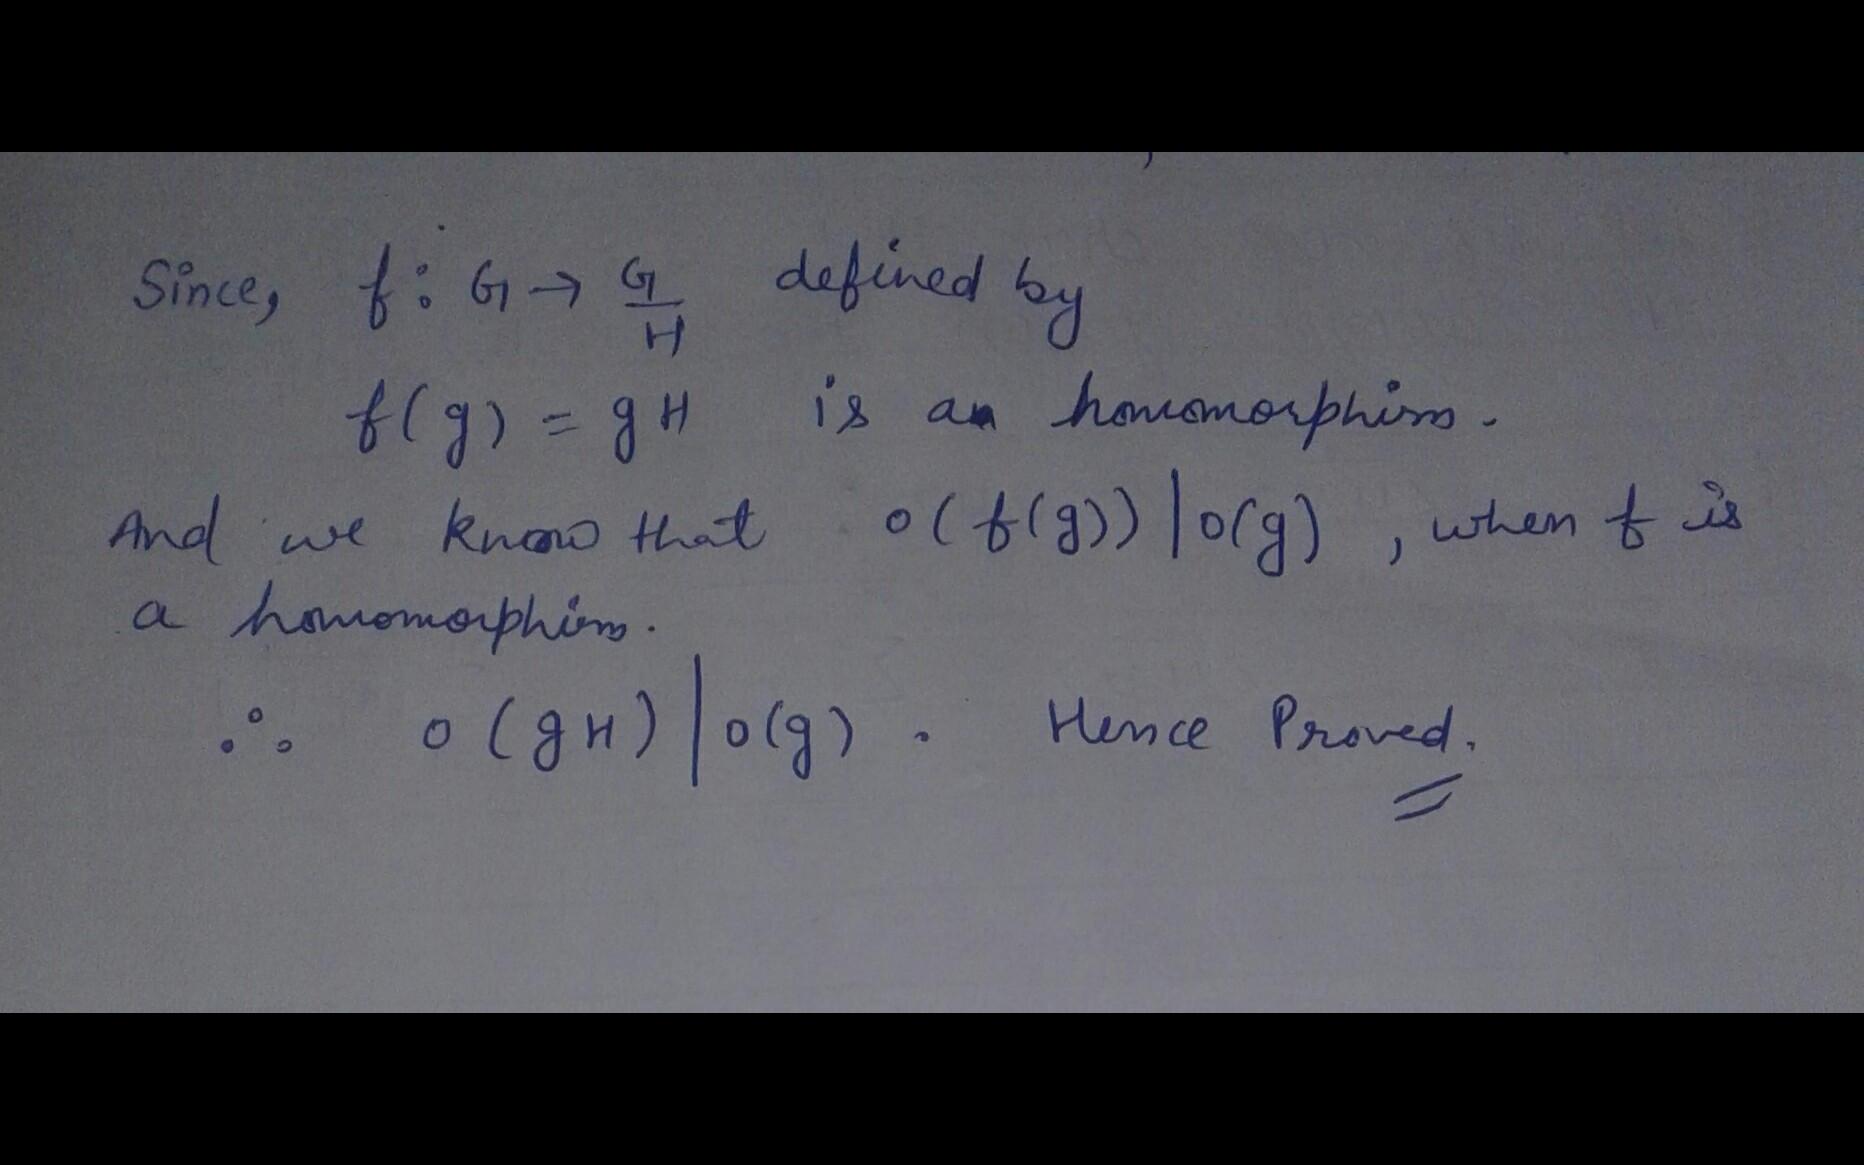 Since, f : G → G/H defined by
f(g) = gH is a homomorphism.
And we know that o(f(g)) | o(g) , when f is
a homomorphism.
∴ o(gH) | o(g) . Hence Proved.